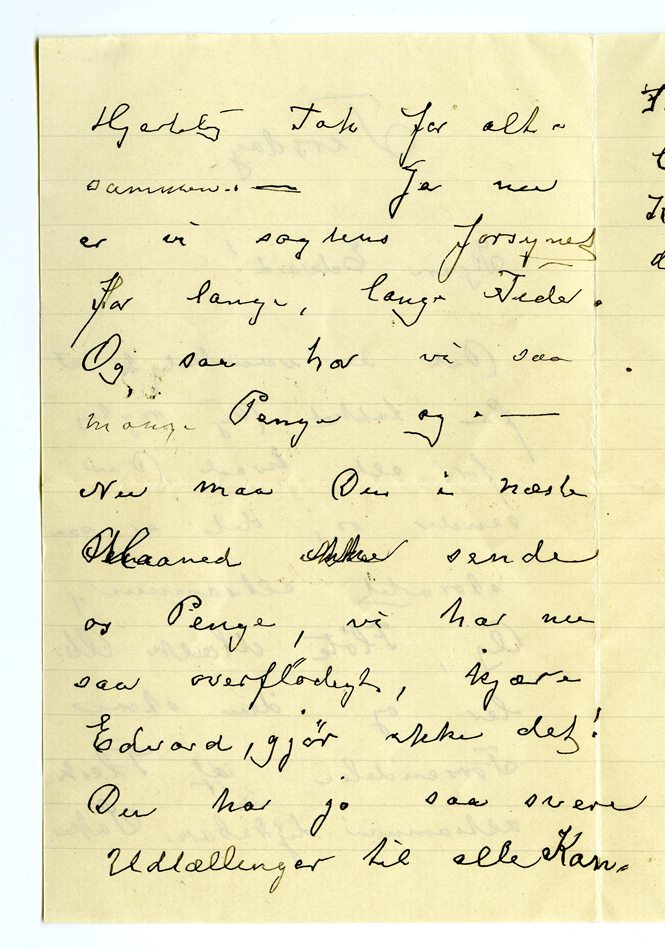 Hjertelig Tak for alt-
sammen. — Ja nu
er vi sagtens forsynet
for lange, lange Tider.
Og saa har vi saa
mange Penge og. —
Nu maa Du i næste
Maaned ikke sende
os Penge, vi har nu
saa overflødigt, kjære
Edvard, gjör ikke det!
Du har jo saa svere
Udtællinger til alle Kan.